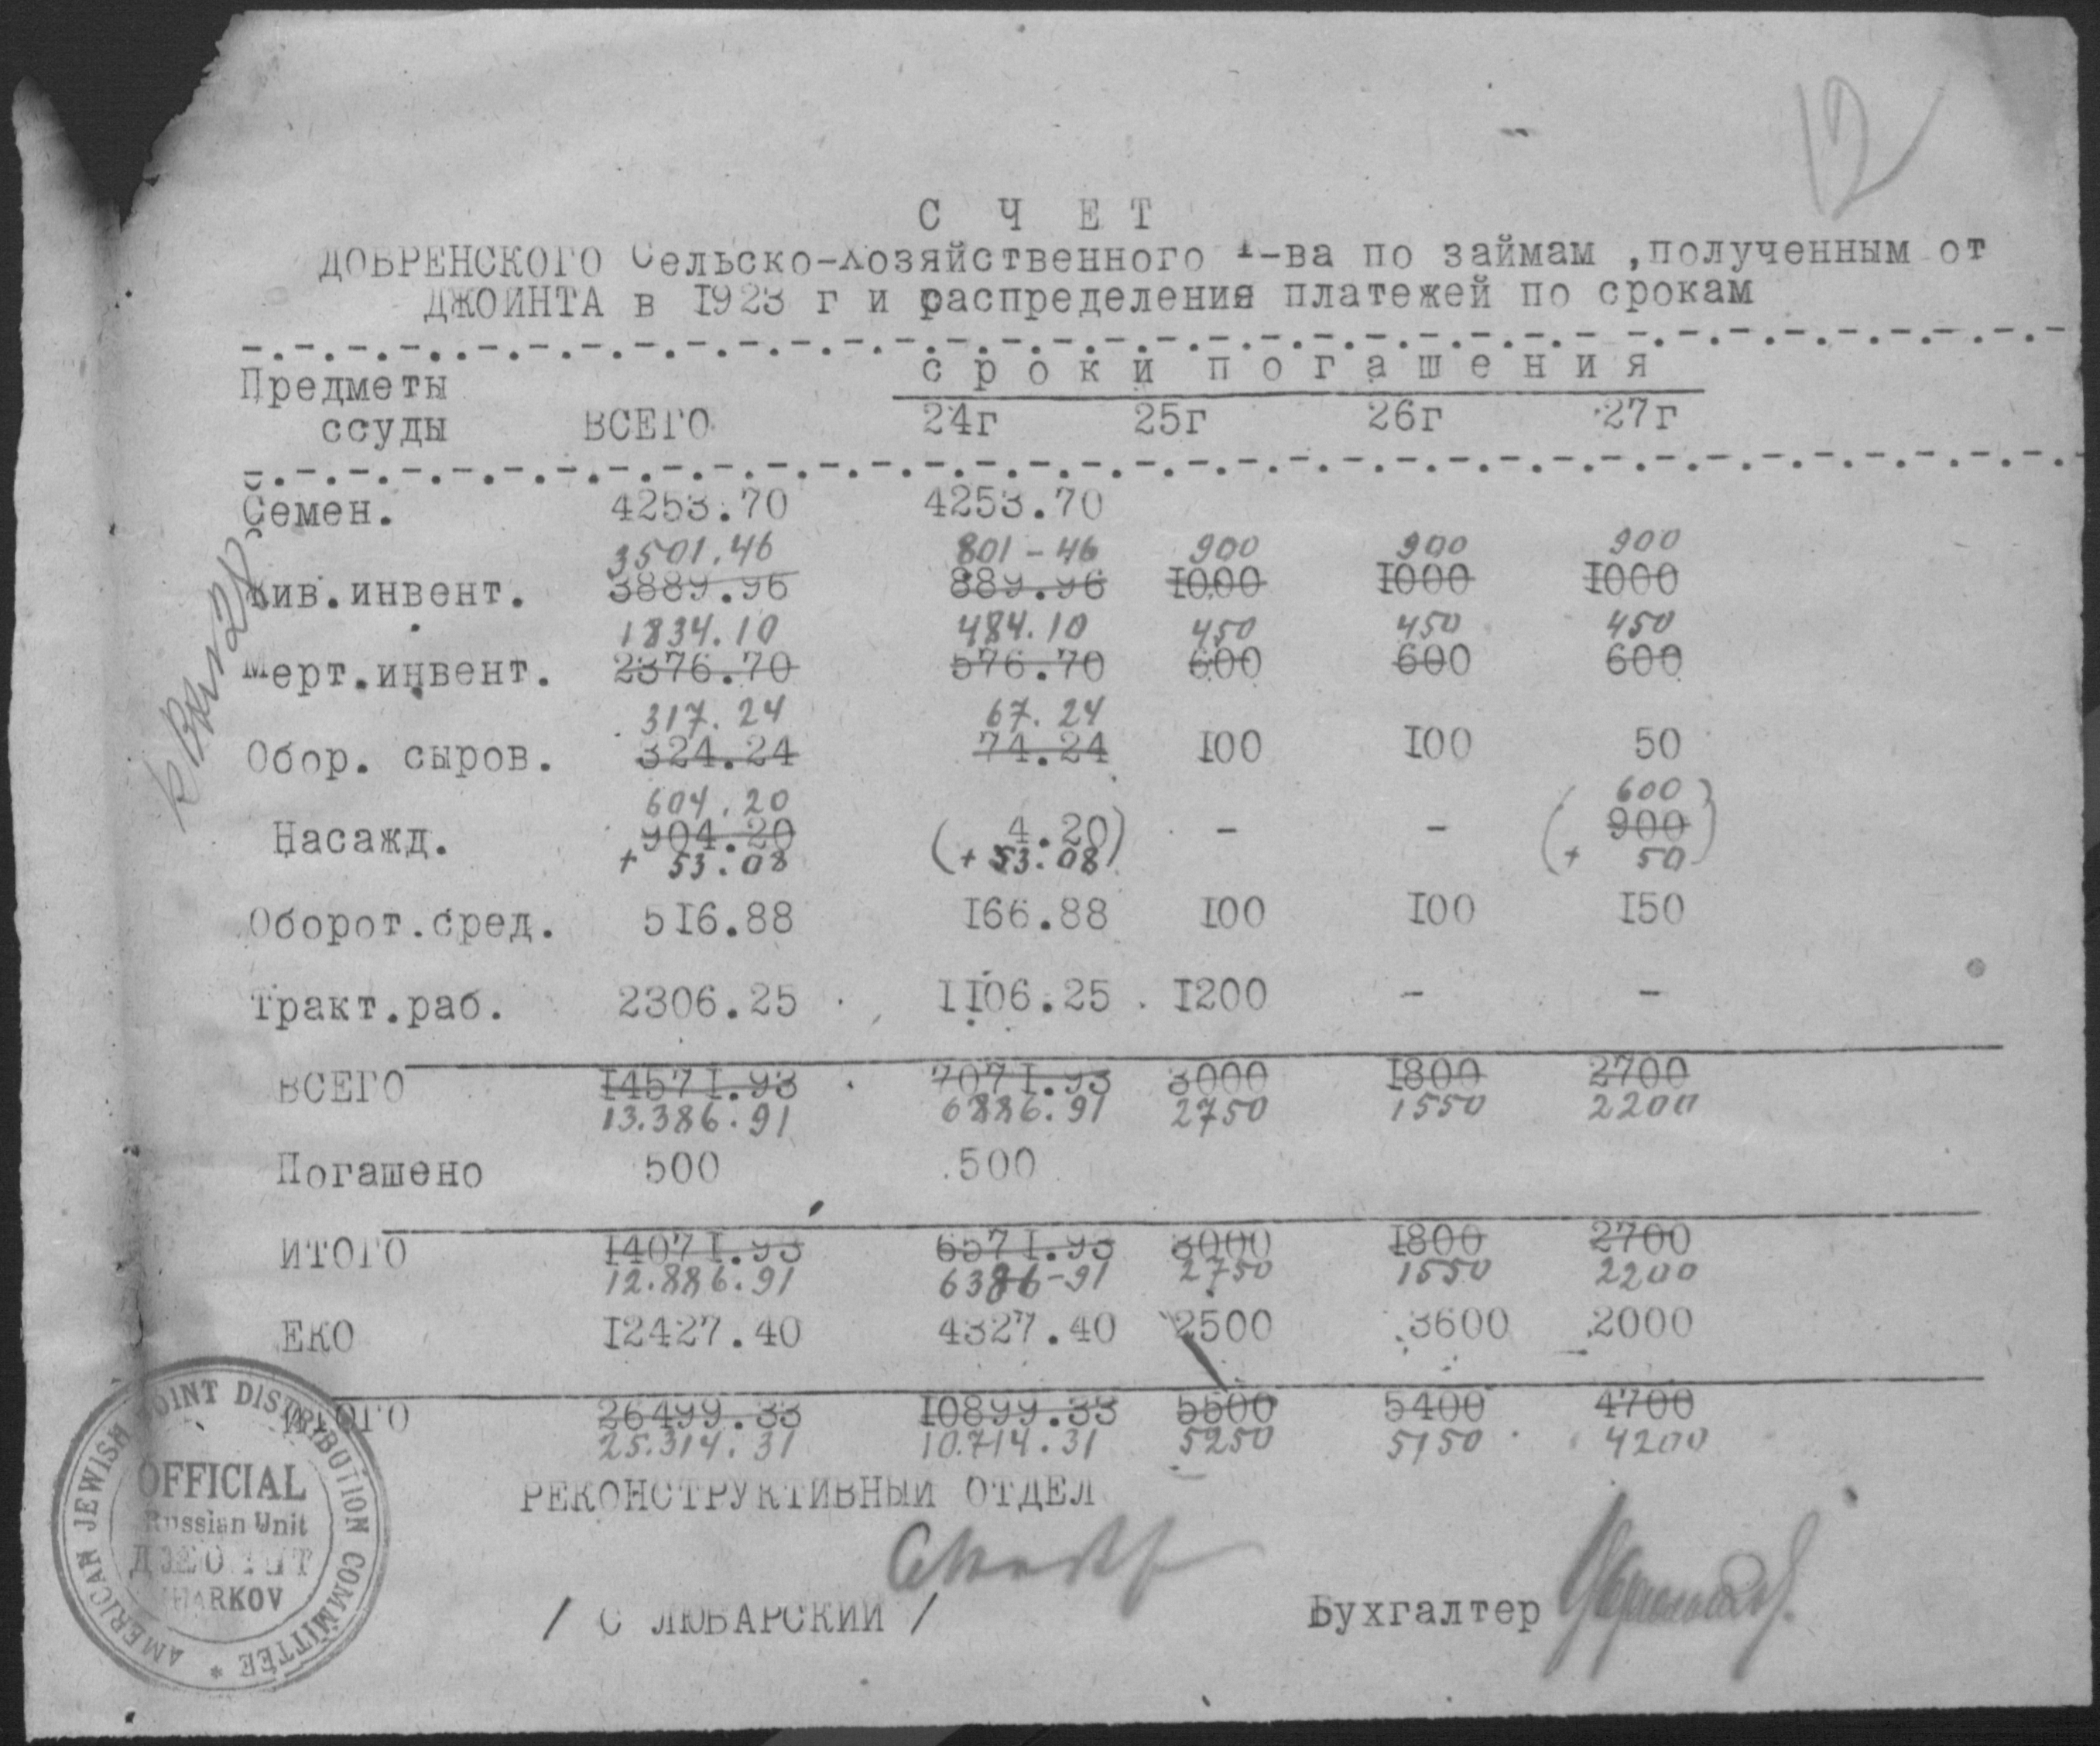 12
С Ч Е Т
ДОБРЕНСКОГО Сельско-Хозяйственного Т-ва по займам ,полученным от
ДЖОИНТА в I923 г и распределения платежей по срокам
Предметы ссуды ВСЕГО с р о к и п о г а ш е н и я
24г 25г 26г 27г
Семен. 4253.70 4253.70
3501.46 801-46 900 900 900
Жив.инвент. 3889.96 889.96 I000 I000 I000
1834.10 484.10 450 450 450
Мерт.инвент. 2376.70 576.70 600 600 600
317.24 67.24
Обор. сыров. 324.24 74.24 I00 I00 50
604.20 (600)
Насажд. 904.20 (4.20) - - 900
+ 53.08 (+ 53.08) (+ 50)
Оборот.сред. 5I6.88 I66.88 I00 I00 I50
Тракт.раб. 2306.25 II06.25 I200 - -
ВСЕГО I457I.93 707I.93 3000 I800 2700
13.386.91 6886.91 2750 1550 2200
Погашено 500 500
ИТОГО I407I.93 657I.93 3000 I800 2700
12.886.91 6386-91 2750 1550 2200
ЕКО I2427.40 4327.40 2500 3600 2000
ИТОГО 26499.33 I0899.33 5500 5400 4700
25.314.31 10.714.31 5250 5150 4200
РЕКОНСТРУКТИВНЫЙ ОТДЕЛ
/ С ЛЮБАРСКИЙ / Бухгалтер
AMERICAN JEWISH JOINT DISTRIBUTION COMMITTEE *
OFFICIAL
Russian Unit
KHARKOV